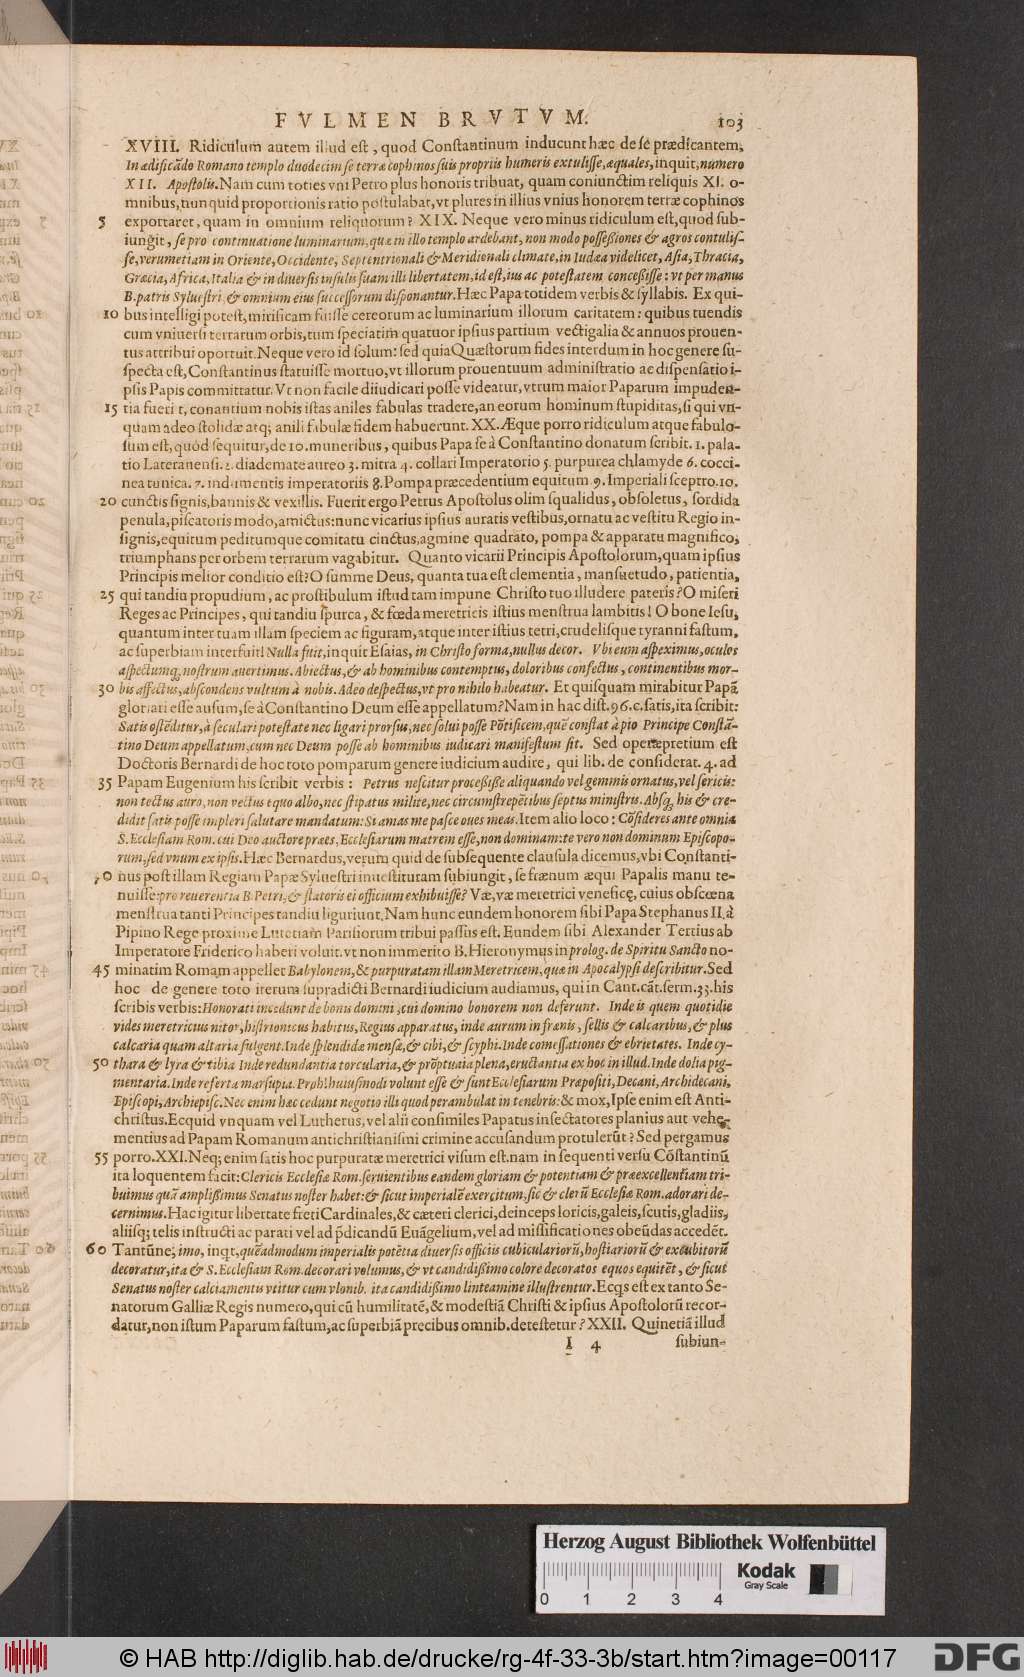 FVLMEN BRVTVM. 103
XVIII. Ridiculum autem illud est, quod Constantinum inducunt hæc de se prædicantem,
In ædificãdo Romano templo duodecim se terræ cophinos suis propriis humeris extulisse, æquales, inquit, numero
XII. Apostolis. Nam cum toties vni Petro plus honoris tribuat, quam coniunctim reliquis XI. o-
mnibus, nunquid proportionis ratio postulabat, vt plures in illius vnius honorem terræ cophinos
5 exportaret, quam in omnium reliquorum? XIX. Neque vero minus ridiculum est, quod sub-
iungit, se pro continuatione luminarium, quæ in illo templo ardebant, non modo possessiones & agros contulis-
se, verumetiam in Oriente, Occidente, Septentrionali & Meridionali climate, in Iudæa videlicet, Asia, Thracia,
Græcia, Africa, Italia & in diuersis insulis suam illi libertatem, id est, ius ac potestatem concessisse: vt per manus
B. patris Syluestri & omnium eius successorum disponantur. Hæc Papa totidem verbis & syllabis. Ex qui-
10 bus intelligi potest, mirificam fuisse cereorum ac luminarium illorum caritatem: quibus tuendis
cum vniuersi terrarum orbis, tum speciatim quatuor ipsius partium vectigalia & annuos prouen-
tus attribui oportuit. Neque vero id solum: sed quia Quæstorum fides interdum in hoc genere su-
specta est, Constantinus statuisse mortuo, vt illorum prouentuum administratio ac dispensatio i-
psis Papis committatur. Vt non facile diiudicari posse videatur, vtrum maior Paparum impuden-
15 tia fuerit, conantium nobis istas aniles fabulas tradere, an eorum hominum stupiditas, si qui vn-
quam adeo stolidæ atq; anili fabulæ fidem habuerunt. XX. Æque porro ridiculum atque fabulo-
sum est, quod sequitur, de 10. muneribus, quibus Papa se à Constantino donatum scribit. 1. pala-
tio Lateranensi. 2. diademate aureo 3. mitra 4. collari Imperatorio 5. purpurea chlamyde 6. cocci-
nea tunica. 7. indumentis imperatoriis 8. Pompa præcedentium equitum 9. Imperiali sceptro. 10.
20 cunctis signis, bannis & vexillis. Fuerit ergo Petrus Apostolus olim squalidus, obsoletus, sordida
penula, piscatoris modo, amictus: nunc vicarius ipsius auratis vestibus, ornatu ac vestitu Regio in-
signis, equitum peditumque comitatu cinctus, agmine quadrato, pompa & apparatu magnifico,
triumphans per orbem terrarum vagabitur. Quanto vicarii Principis Apostolorum, quam ipsius
Principis melior conditio est? O summe Deus, quanta tua est clementia, mansuetudo, patientia,
25 qui tandiu propudium, ac prostibulum istud tam impune Christo tuo illudere pateris? O miseri
Reges ac Principes, qui tandiu spurca, & fœda meretricis istius menstrua lambitis! O bone Iesu,
quantum inter tuam illam speciem ac figuram, atque inter istius tetri, crudelisque tyranni fastum,
ac superbiam interfuit! Nulla fuit, inquit Esaias, in Christo forma, nullus decor. Vbi eum aspeximus, oculos
aspectumq; nostrum auertimus. Abiectus, & ab hominibus contemptus, doloribus confectus, continentibus mor-
30 bis affectus, abscondens vultum à nobis. Adeo despectus, vt pro nihilo habeatur. Et quisquam mirabitur Papã
gloriari esse ausum, se à Constantino Deum esse appellatum? Nam in hac dist. 96. c. satis, ita scribit:
Satis ostẽditur, à seculari potestate nec ligari prorsus, nec solui posse Põtificem, quẽ constat à pio Principe Constã-
tino Deum appellatum, cum nec Deum posse ab hominibus iudicari manifestum sit. Sed operæpretium est
Doctoris Bernardi de hoc toto pomparum genere iudicium audire, qui lib. de considerat. 4. ad
35 Papam Eugenium his scribit verbis: Petrus nescitur processisse aliquando vel gemmis ornatus, vel sericis:
non tectus auro, non vectus equo albo, nec stipatus milite, nec circumstrepẽtibus septus ministris. Absq; his & cre-
didit satis posse impleri salutare mandatum: Si amas me pasce oues meas. Item alio loco: Cõsideres ante omnia
S. Ecclesiam Rom. cui Deo auctore præes, Ecclesiarum matrem esse, non dominam: te vero non dominum Episcopo-
rum, sed vnum ex ipsis. Hæc Bernardus, verum quid de subsequente clausula dicemus, vbi Constanti-
40 nus post illam Regiam Papæ Syluestri inuestituram subiungit, se frænum æqui Papalis manu te-
nuisse: pro reuerentia B. Petri, & statoris ei officium exhibuisse? Væ, væ meretrici veneficę, cuius obscœna
menstrua tanti Principes tandiu liguriunt. Nam hunc eundem honorem sibi Papa Stephanus II. à
Pipino Rege proxime Lutetiam Parisiorum tribui passus est. Eundem sibi Alexander Tertius ab
Imperatore Friderico haberi voluit. vt non immerito B. Hieronymus in prolog. de Spiritu Sancto no-
45 minatim Romam appellet Babylonem, & purpuratam illam Meretricem, quæ in Apocalypsi describitur. Sed
hoc de genere toto iterum supradicti Bernardi iudicium audiamus, qui in Cant. cãt. serm. 33. his
scribis verbis: Honorati incedunt de bonis domini, cui domino honorem non deferunt. Inde is quem quotidie
vides meretricius nitor, histrionicus habitus, Regius apparatus, inde aurum in frænis, sellis & calcaribus, & plus
calcaria quam altaria fulgent. Inde splendidæ mensæ, & cibi, & scyphi. Inde comessationes & ebrietates. Inde cy-
50 thara & lyra & tibia Inde redundantia torcularia, & prõptuaia plena, eructantia ex hoc in illud. Inde dolia pig-
mentaria. Inde referta marsupia. Proh! huiusmodi volunt esse & sunt Ecclesiarum Præpositi, Decani, Archidecani,
Episcopi, Archiepisc. Nec enim hæc cedunt negotio illi quod perambulat in tenebris: & mox, Ipse enim est Anti-
christus. Ecquid vnquam vel Lutherus, vel alii consimiles Papatus insectatores planius aut vehe-
mentius ad Papam Romanum antichristianismi crimine accusandum protulerũt? Sed pergamus
55 porro. XXI. Neq; enim satis hoc purpuratæ meretrici visum est. nam in sequenti versu Cõstantinũ
ita loquentem facit: Clericis Ecclesiæ Rom. seruientibus eandem gloriam & potentiam & præexcellentiam tri-
buimus quã amplissimus Senatus noster habet: & sicut imperialẽ exercitum, sic & clerũ Ecclesiæ Rom. adorari de-
cernimus. Hac igitur libertate freti Cardinales, & cæteri clerici, deinceps loricis, galeis, scutis, gladiis,
aliisq; telis instructi ac parati vel ad p̃dicandũ Euãgelium, vel ad missificationes obeũdas accedẽt.
60 Tantũne, imo, inqt, quẽadmodum imperialis potẽtia diuersis officiis cubiculariorũ, hostiariorũ & excubitorũ
decoratur, ita & S. Ecclesiam Rom. decorari volumus, & vt candidissimo colore decoratos equos equitẽt, & sicut
Senatus noster calciamentis vtitur cum vdonib. ita candidissimo linteamine illustrentur. Ecqs est ex tanto Se-
natorum Galliæ Regis numero, qui cũ humilitatẽ, & modestiã Christi & ipsius Apostolorũ recor-
datur, non istum Paparum fastum, ac superbiã precibus omnib. detestetur? XXII. Quinetiã illud
I 4 subiun-
Herzog August Bibliothek Wolfenbüttel
0 1 2 3 4
Kodak
Gray Scale
© HAB http://diglib.hab.de/drucke/rg-4f-33-3b/start.htm?image=00117
DFG